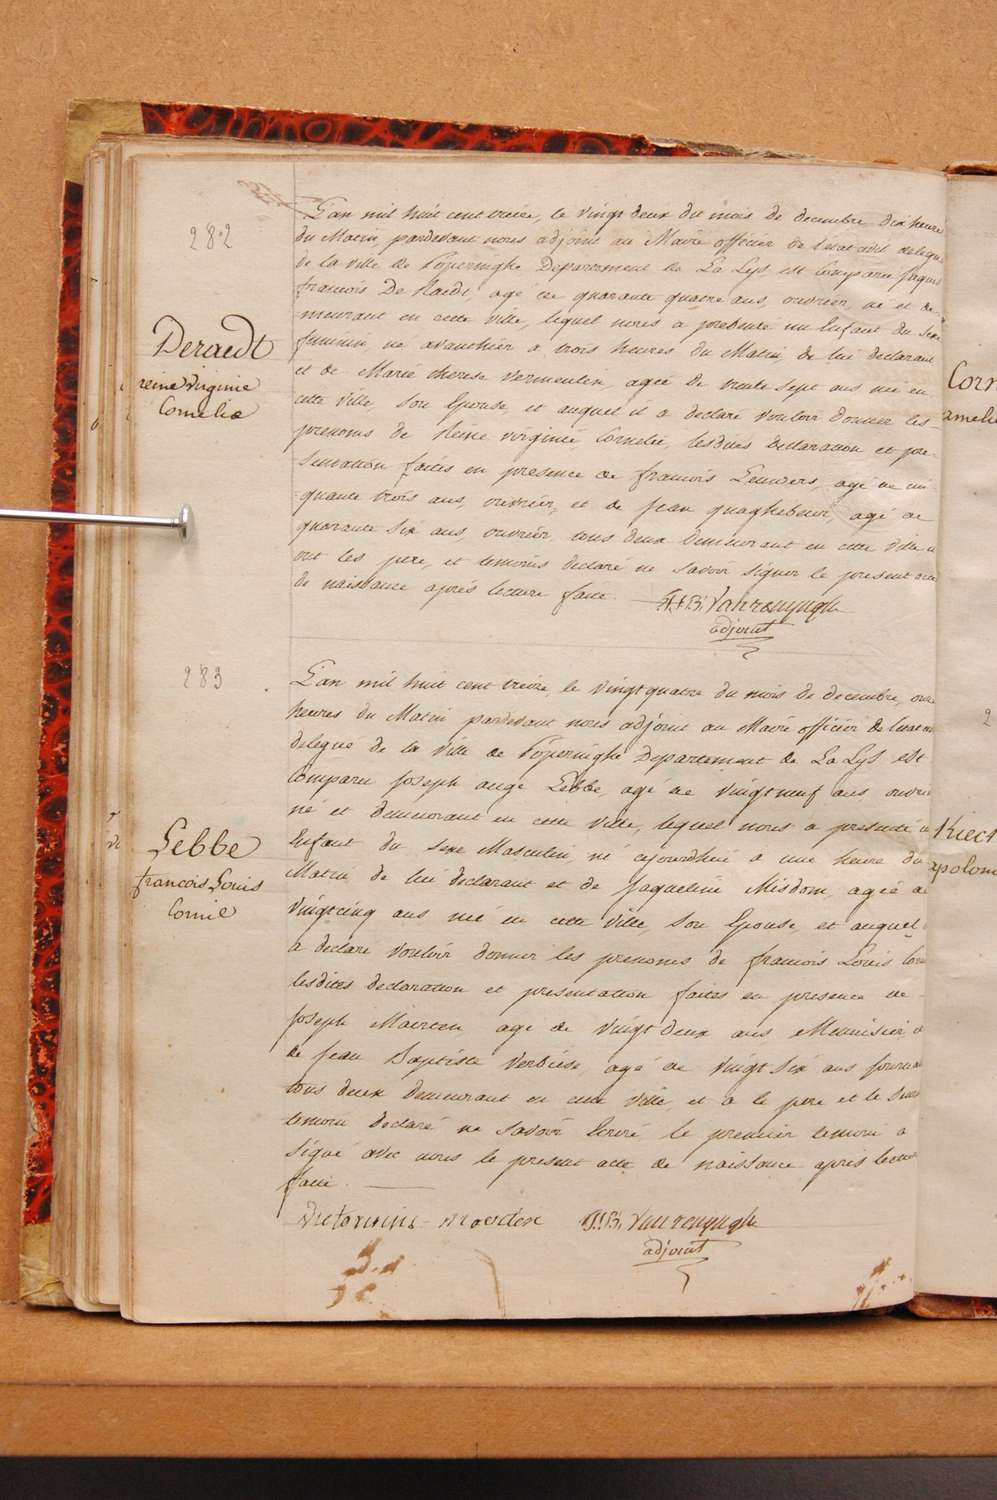 282
L'an mil huit cent treize, le vingt deux du mois de decembre dix heures
du Matin pardevant nous adjoint au Maire officier de l'état civil delegué
de la ville de Poperinghe Departement de La Lys est Comparu Jaques
francois De Raedt, agé de quarante quatre ans, ouvrier, né et de-
meurant en cette ville, lequel nous a presenté un Enfant du Sexe
feminin, né avanthier a trois heures du Matin, de lui declarant
et de Marie therese Vermeulen, agée de trente Sept ans née en
cette Ville, Son Epouse, et auquel il a declaré vouloir donner les
prenoms de Reine virginie Cornelie, lesdites declaration et pre-
sentation faites en presence de francois Leuwers, agé de cin-
quante trois ans, ouvrier, et de Jean quaghebeur, agé de
quarante Six ans, ouvrier, tous deux Demeurant en cette Ville
ont les pere, et temoins declaré ne Savoir Signer le present acte
de naissance aprés lecture faite
Deraedt
reine Virginie
Cornelie
J.B. Vanrenynghe
adjoint
283
L'an mil huit cent treize, le vingtquatre du mois de decembre, onze
heures du Matin pardevant nous adjoint au Maire officier de
delegué de la Ville de Poperinghe Departement de La Lys est
Comparu Joseph ange Lebbe agé de vingtneuf ans
né et demeurant en cette ville, lequel nous a presenté
Enfant du Sexe Masculin, né aujourdhui a une heure du
Matin de lui declarant et de Jaqueline Misdom, agée de
Vingtcinq ans née en cette Ville, Son Epouse, et auquel
a declaré vouloir donner les prenoms de francois Louis
lesdites declaration et presentation faites en presence de
Joseph Maerten, agé de vingt deux ans Menuisier,
de Jean Baptiste Verdiese agé de vingt Six ans
tous deux demeurant en cette Ville, et a le pere et le
temoin declaré ne Savoir Ecrire le premier temoin a
Signé avec nous le present acte de naissance aprés lecture
faite
Lebbe
francois Louis
Cornil
Maerten J.B. Vanrenynghe
adjoint
Corn
amelie
2
Kiect
apolon